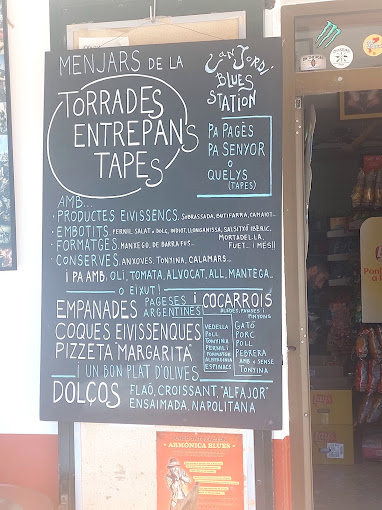 MENJARS DE LA
CAN JORDI
BLUES
STATION
TORRADES
ENTREPANS
TAPES
PA PAGÈS
PA SENYOR
O
QUELYS
(TAPES)
AMB...
· PRODUCTES EIVISSENCS. SOBRASSADA, BUTIFARRA, CAMAIOT...
· EMBOTITS PERNIL SALAT O DOLÇ, INDIOT, LLONGANISSA, SALSITXÓ IBÈRIC,
MORTADEL·LA
· FORMATGES. MANXEGO, DE BARRA FVS... FUET... I MES!!
· CONSERVES ANXOVES, TONYINA, CALAMARS...
I PA AMB OLI, TOMATA, ALVOCAT, ALL, MANTEGA...
O EIXUT!
EMPANADES PAGESES I COCARROIS
ARGENTINES
COQUES EIVISSENQUES
PIZZETA MARGARITA
I UN BON PLAT D'OLIVES
VEDELLA
POLL
TONYINA
PERNIL I
FORMATGE
ESPINACS
GATÓ
PORC
POLL
PEBRERA
AMB O SENSE
TONYINA
DOLÇOS FLAÓ, CROISSANT, "ALFAJOR"
ENSAIMADA, NAPOLITANA
ARMÓNICA BLUES